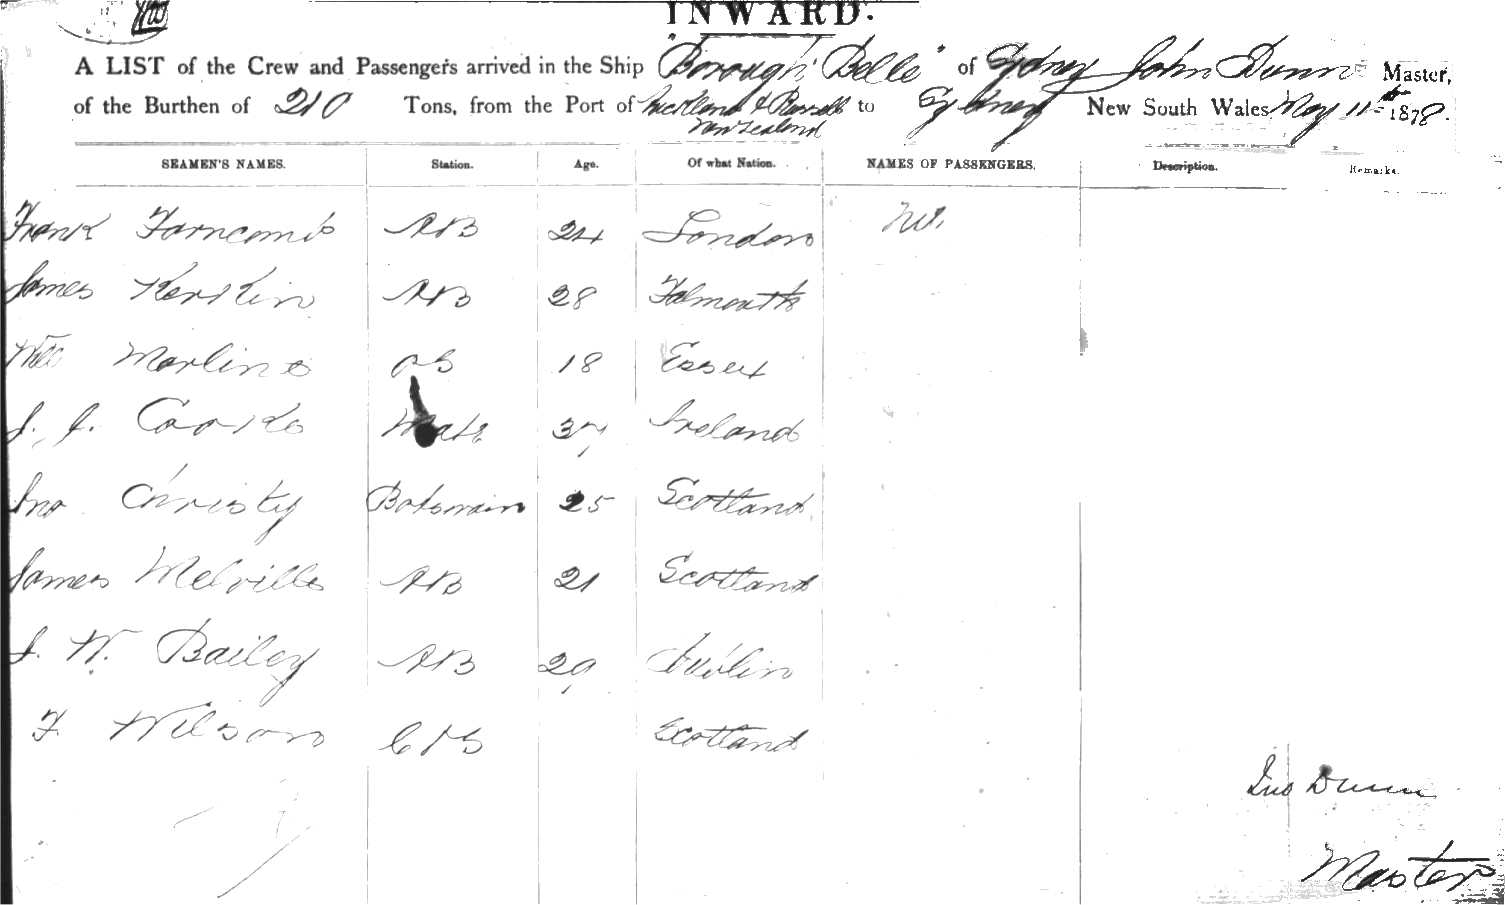 INWARD.
A LIST of the Crew and Passengers arrived in the Ship "Borough Belle" of Sydney John Dunn Master,
of the Burthen of 210 Tons, from the Port of Auckland & Russell to Sydney New South Wales May 11th 1878.
New Zealand
SEAMEN'S NAMES. Station. Age. Of what Nation. NAMES OF PASSENGERS. Description. Remarks.
Frank Farncomb AB 24 London Nil
James Kerskin AB 28 Falmouth
Will OS 18 Essex
J. J. Cooke Mate 37 Ireland
Jno Christy Botswain 25 Scotland
James Melville AB 21 Scotland
J. W. Bailey AB 29 Dublin
F. Wilson Scotland
Jno Dunn
Master